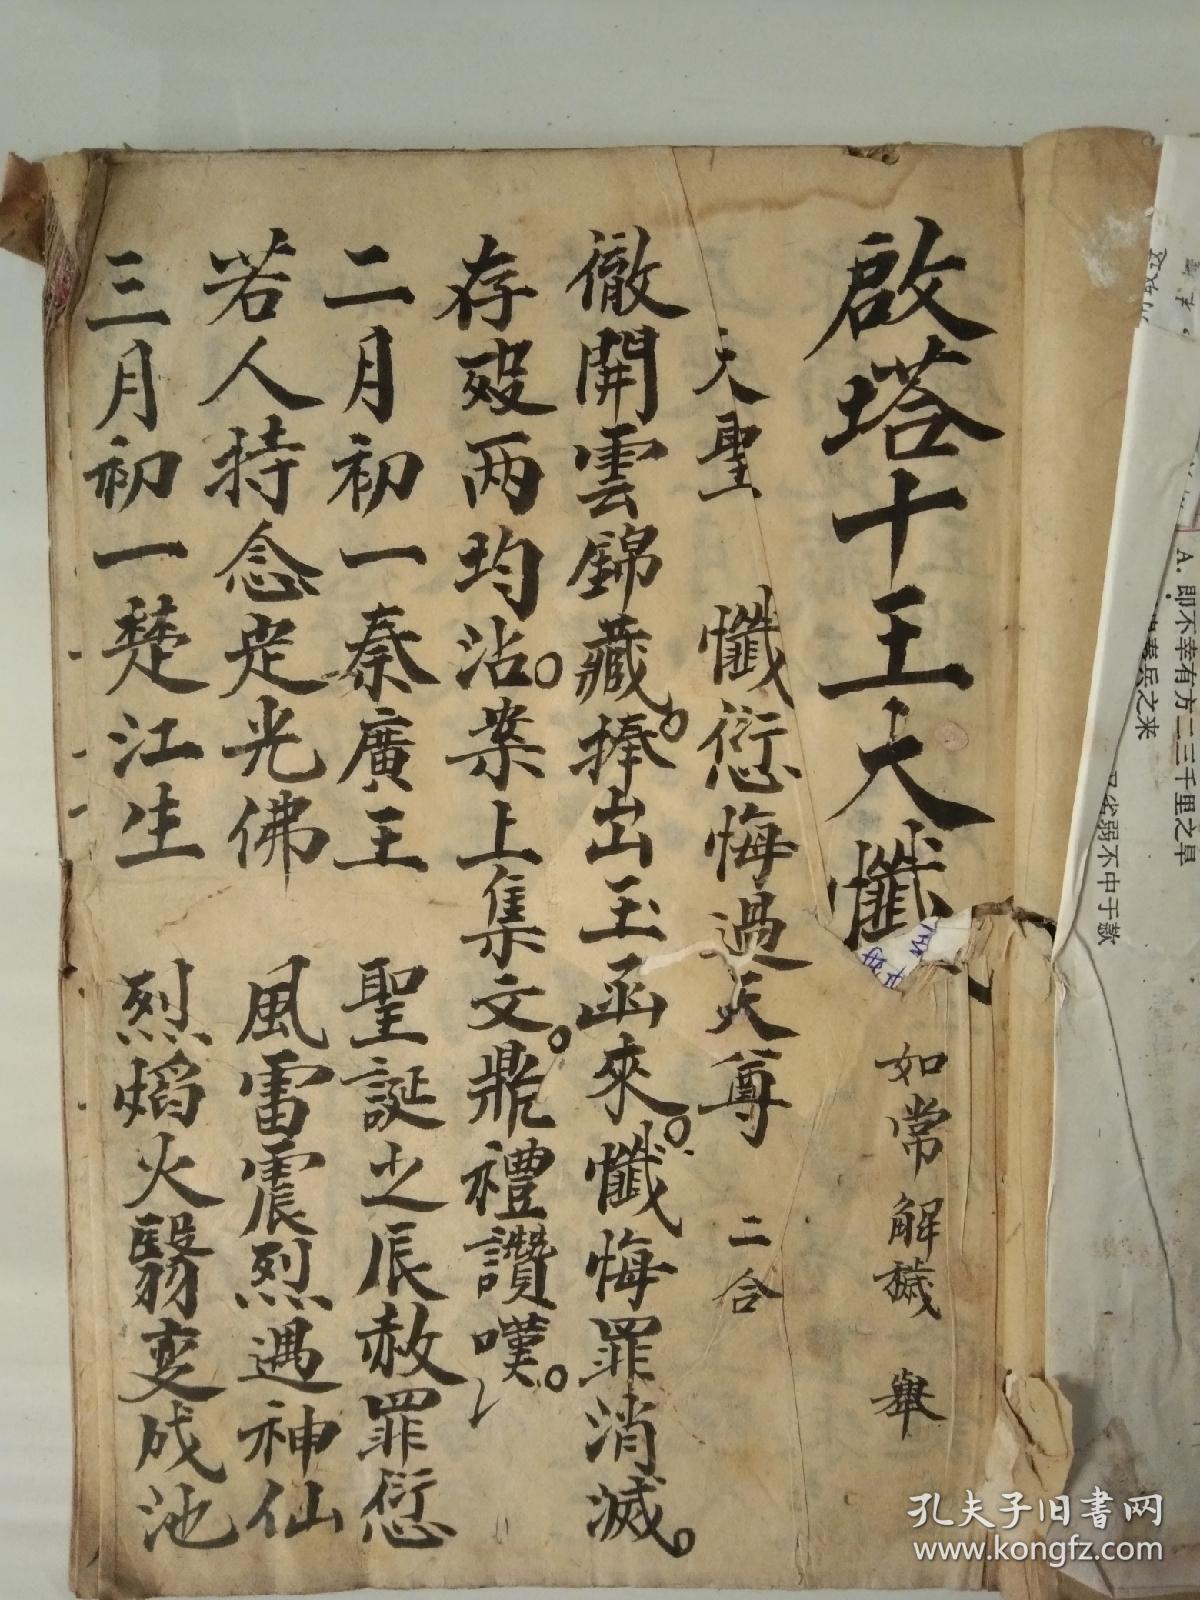 啟塔十王大懺
如常解穢　舉
大聖　懺愆悔過天尊　二合
徹開雲錦藏。捧出玉函來。懺悔罪消滅。
存殁兩均沾。業上集文。鼎禮讚嘆。
二月初一秦廣王　聖誕之辰赦罪愆
若人持念定光佛　風雷震烈遇神仙
三月初一楚江生　烈焰火翳变成池
A. 即不幸有方二三千里之旱
兵之来
省弱不中于款
孔夫子旧书网
www.kongfz.com